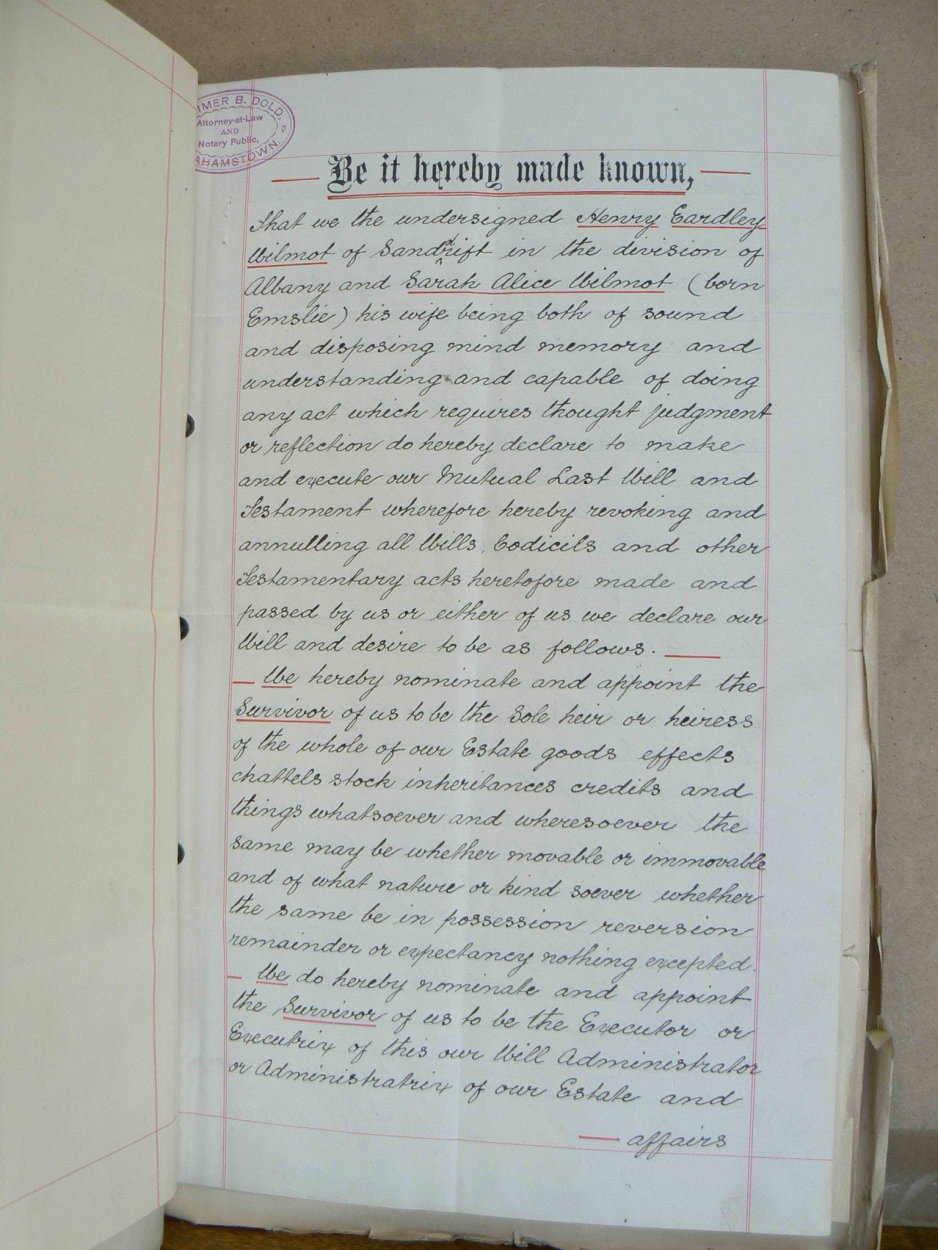 IMER B. DOLD,
Attorney-at-Law
AND
Notary Public,
AHAMSTOWN.
Be it hereby made known,
That we the undersigned Henry Eardley
Wilmot of Sanddrift in the division of
Albany and Sarah Alice Wilmot (born
Emslie) his wife being both of sound
and disposing mind memory and
understanding and capable of doing
any act which requires thought judgment
or reflection do hereby declare to make
and execute our Mutual Last Will and
Testament wherefore hereby revoking and
annulling all Wills Codicils and other
Testamentary acts heretofore made and
passed by us or either of us we declare our
Will and desire to be as follows.
We hereby nominate and appoint the
Survivor of us to be the Sole heir or heiress
of the whole of our Estate goods effects
chattels stock inheritances credits and
things whatsoever and wheresoever the
same may be whether movable or immovable
and of what nature or kind soever whether
the same be in possession reversion
remainder or expectancy nothing excepted.
We do hereby nominate and appoint
the Survivor of us to be the Executor or
Executrix of this our Will Administrator
or Administratrix of our Estate and
affairs